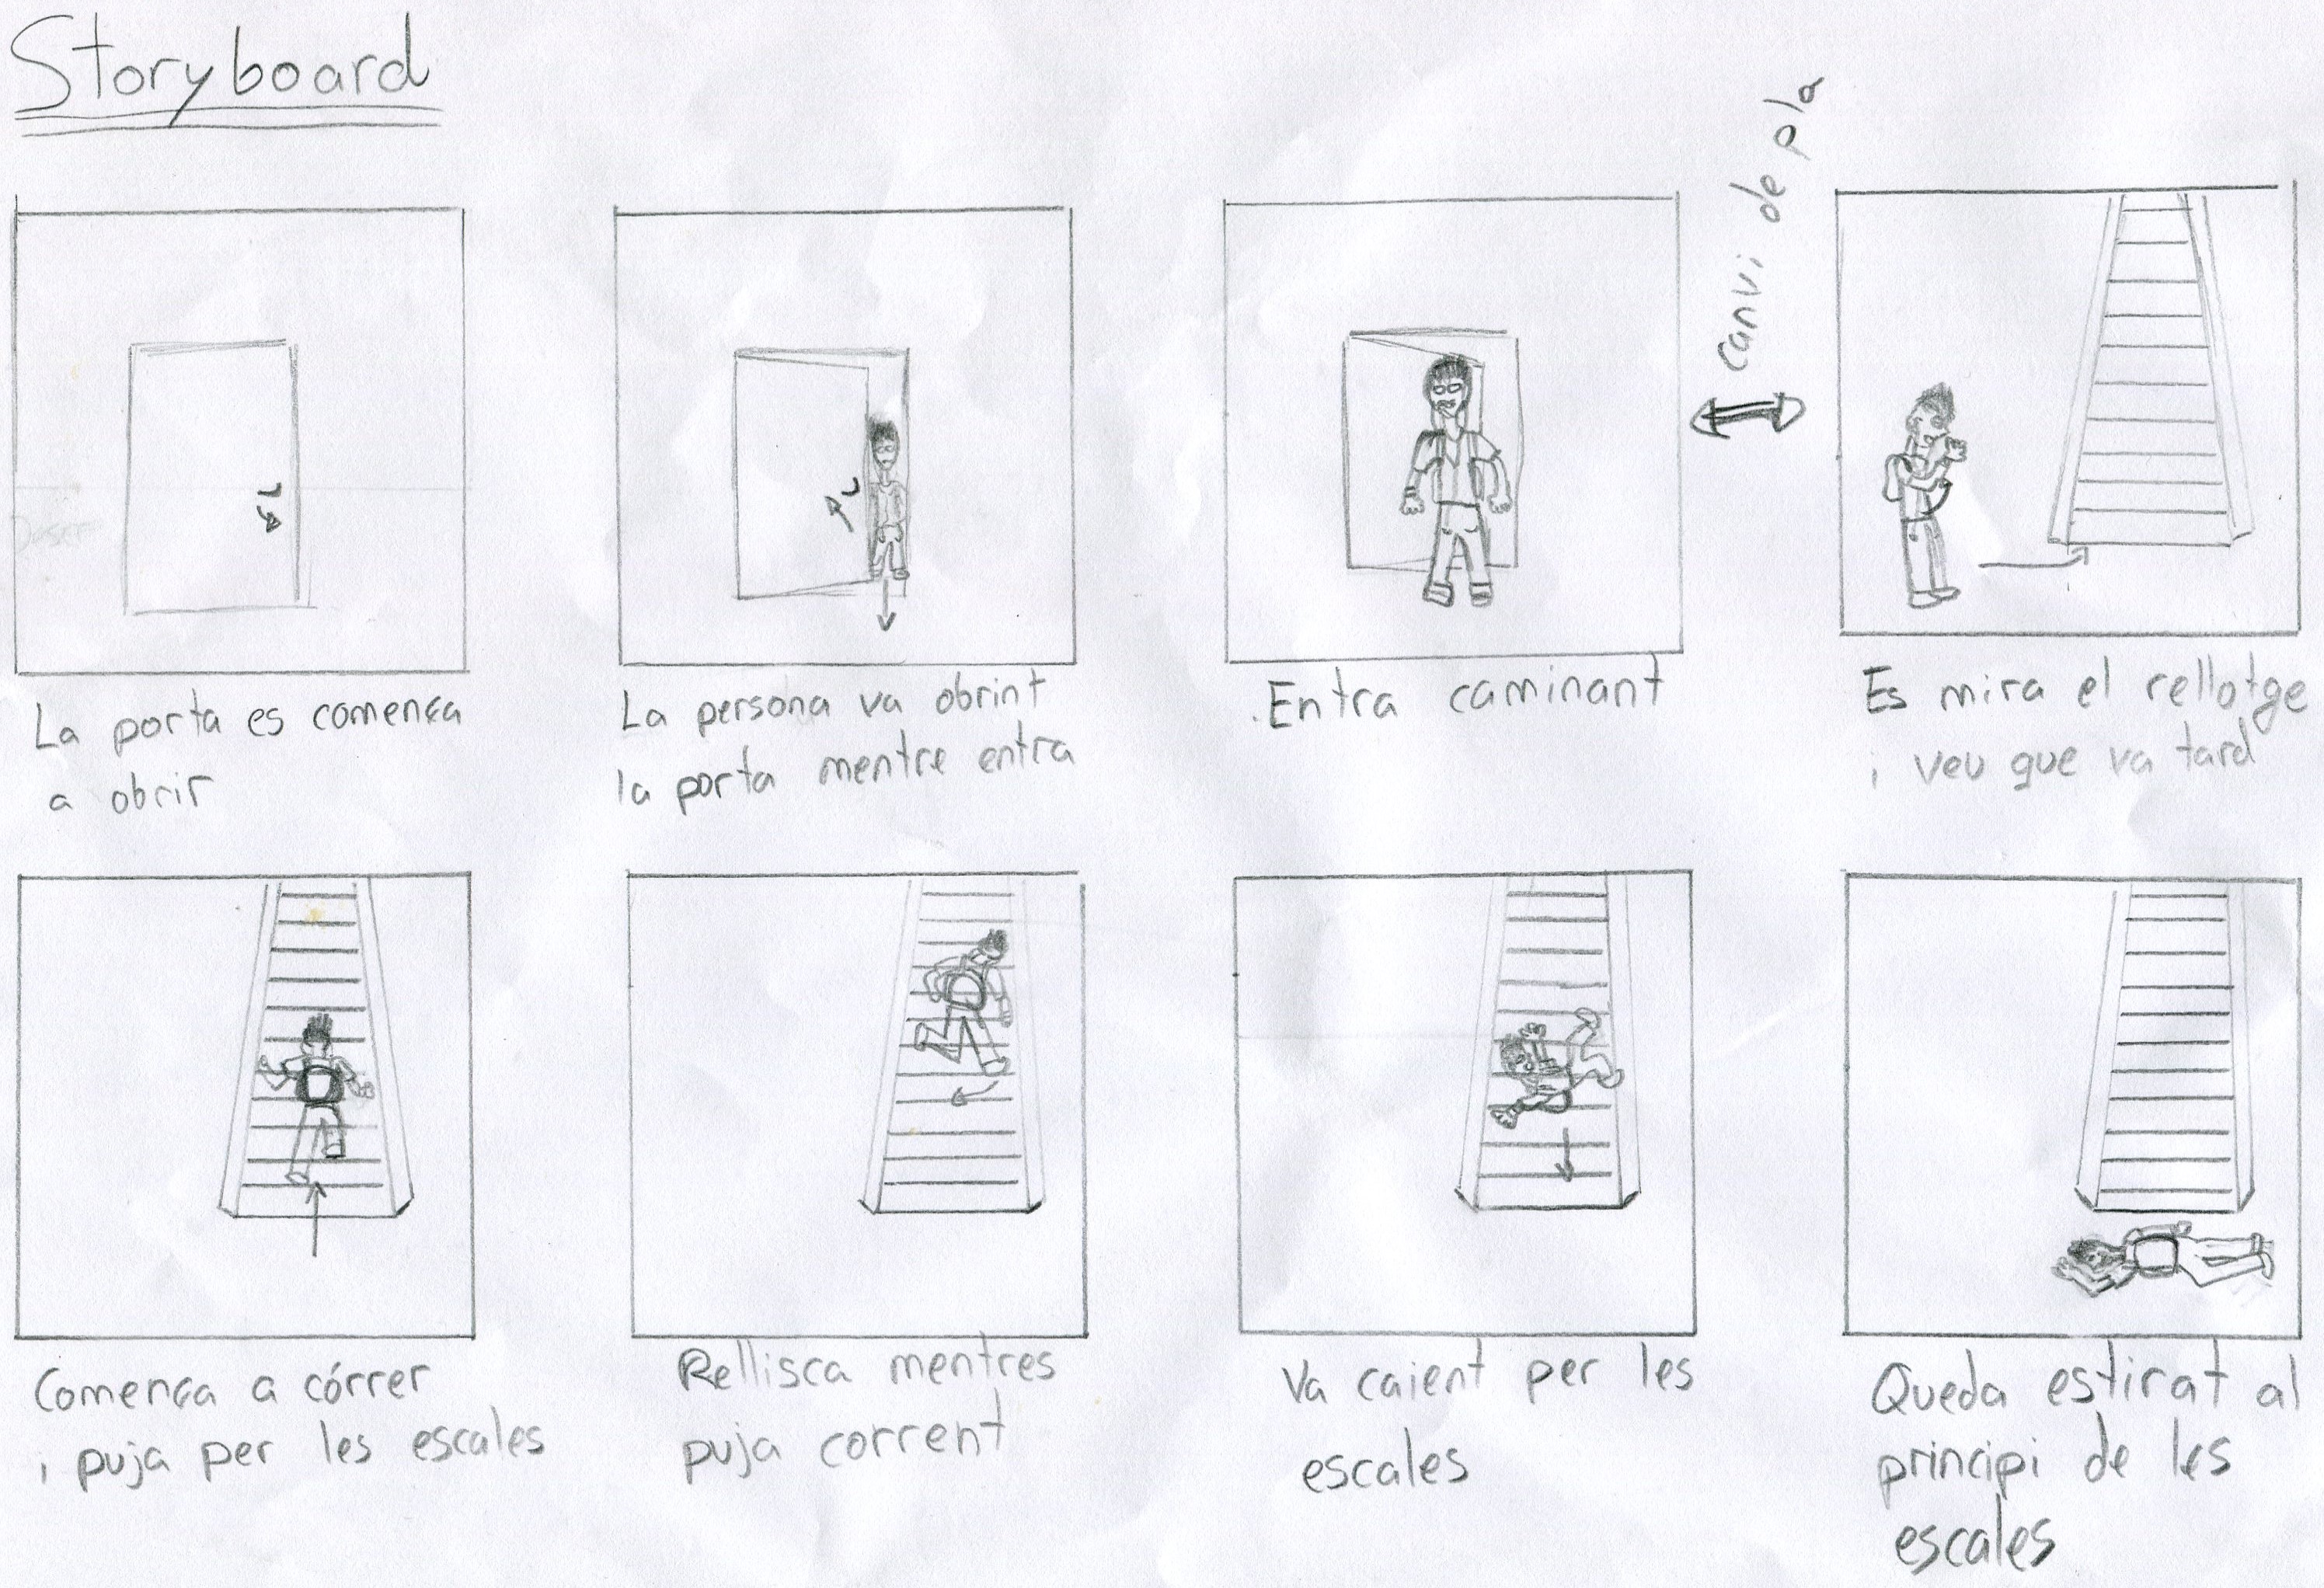 Storyboard
canvi de pla
La porta es comença
a obrir
La persona va obrint
la porta mentre entra
Entra caminant
Es mira el rellotge
i veu que va tard
Comença a córrer
i puja per les escales
Rellisca mentres
puja corrent
Va caient per les
escales
Queda estirat al
principi de les
escales